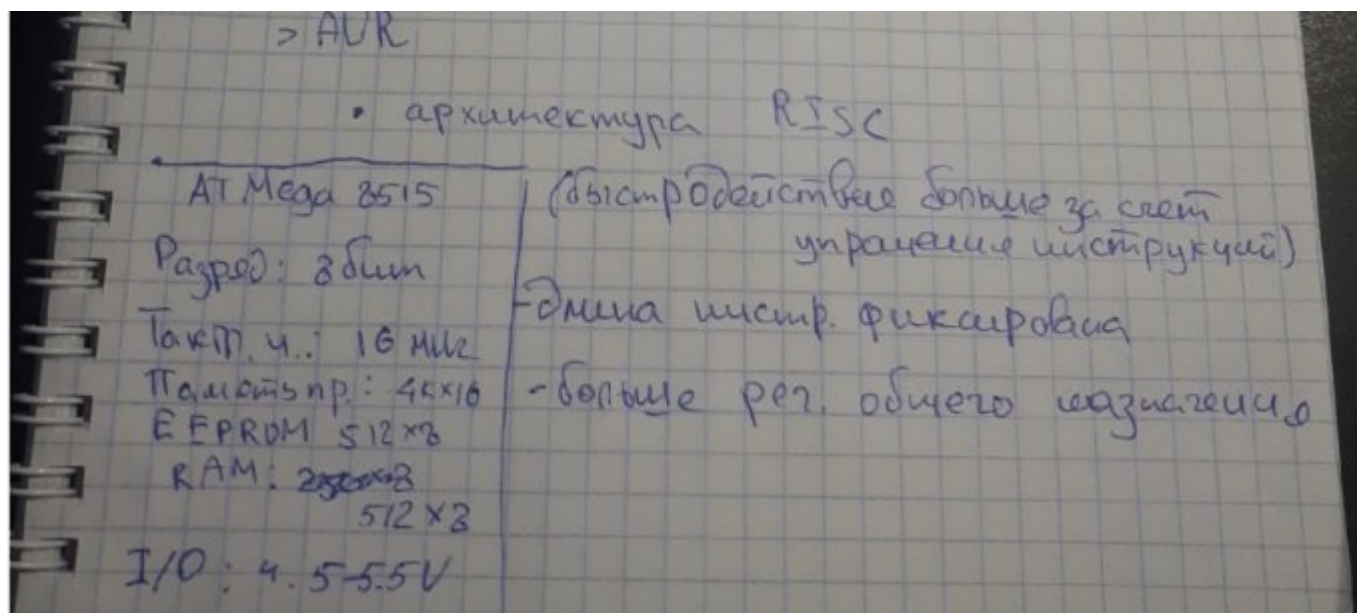 > AVR
• архитектура RISC
ATMega 8515
Разряд: 8 бит
Такт. ч.: 16 МГц
Память пр.: 4K×16
EEPROM 512×8
RAM:
512×8
I/O: 4.5-5.5V
(быстродействие больше за счет
упращения инструкций)
-длина инстр. фиксирована
-больше рег. общего назначения